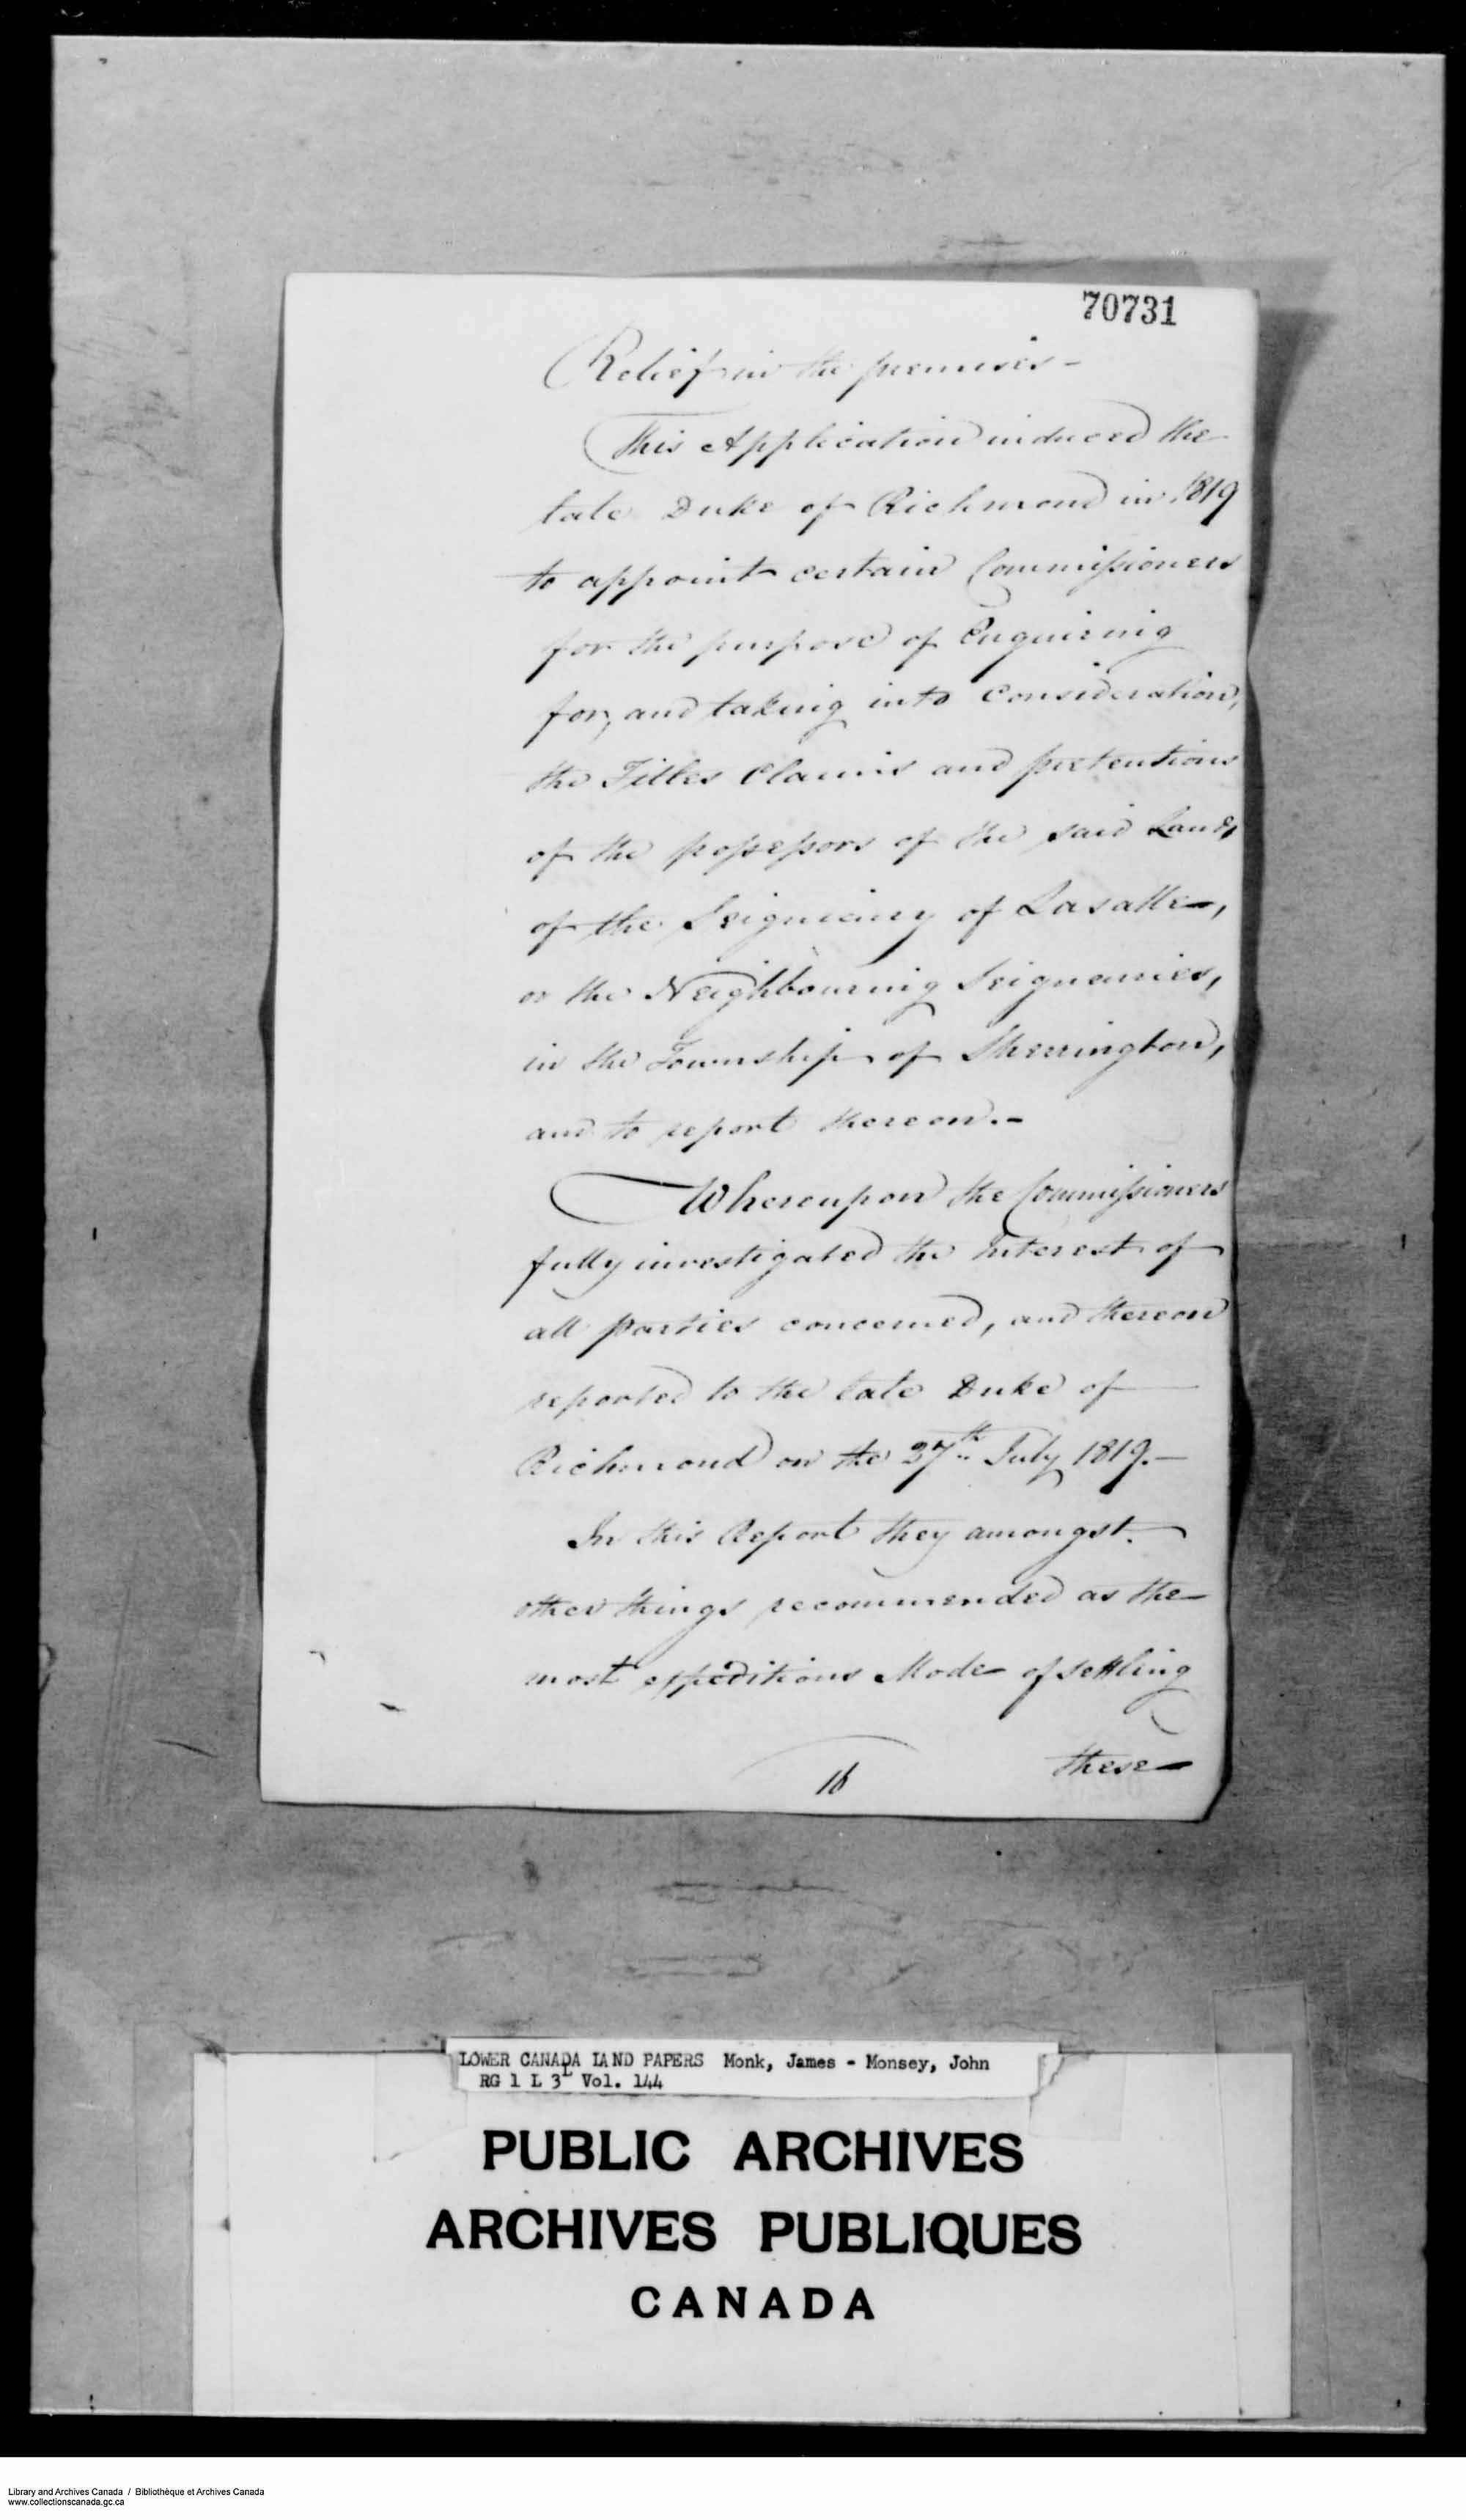 70731
Relief in the premises -
This Application induced the
late Duke of Richmond in 1819
to appoint certain Commissioners
for the purpose of Enquiring
for, and taking into Consideration,
the Titles Claims and pretentions
of the possessors of the said Lands,
of the Seigniory of Lasalle,
or the Neighbouring Seignories,
in the Township of Sherrington,
and to report thereon. -
Whereupon the Commissioners
fully investigated the Interest of
all parties concerned, and thereon
reported to the late Duke of
Richmond on the 27th July 1819. -
In this Report they amongst
other things recommended as the
most expeditious Mode of settling
these
16
LOWER CANADA LAND PAPERS Monk, James - Monsey, John
RG 1 L 3L Vol. 144
PUBLIC ARCHIVES
ARCHIVES PUBLIQUES
CANADA
Library and Archives Canada / Bibliothèque et Archives Canada
www.collectionscanada.gc.ca